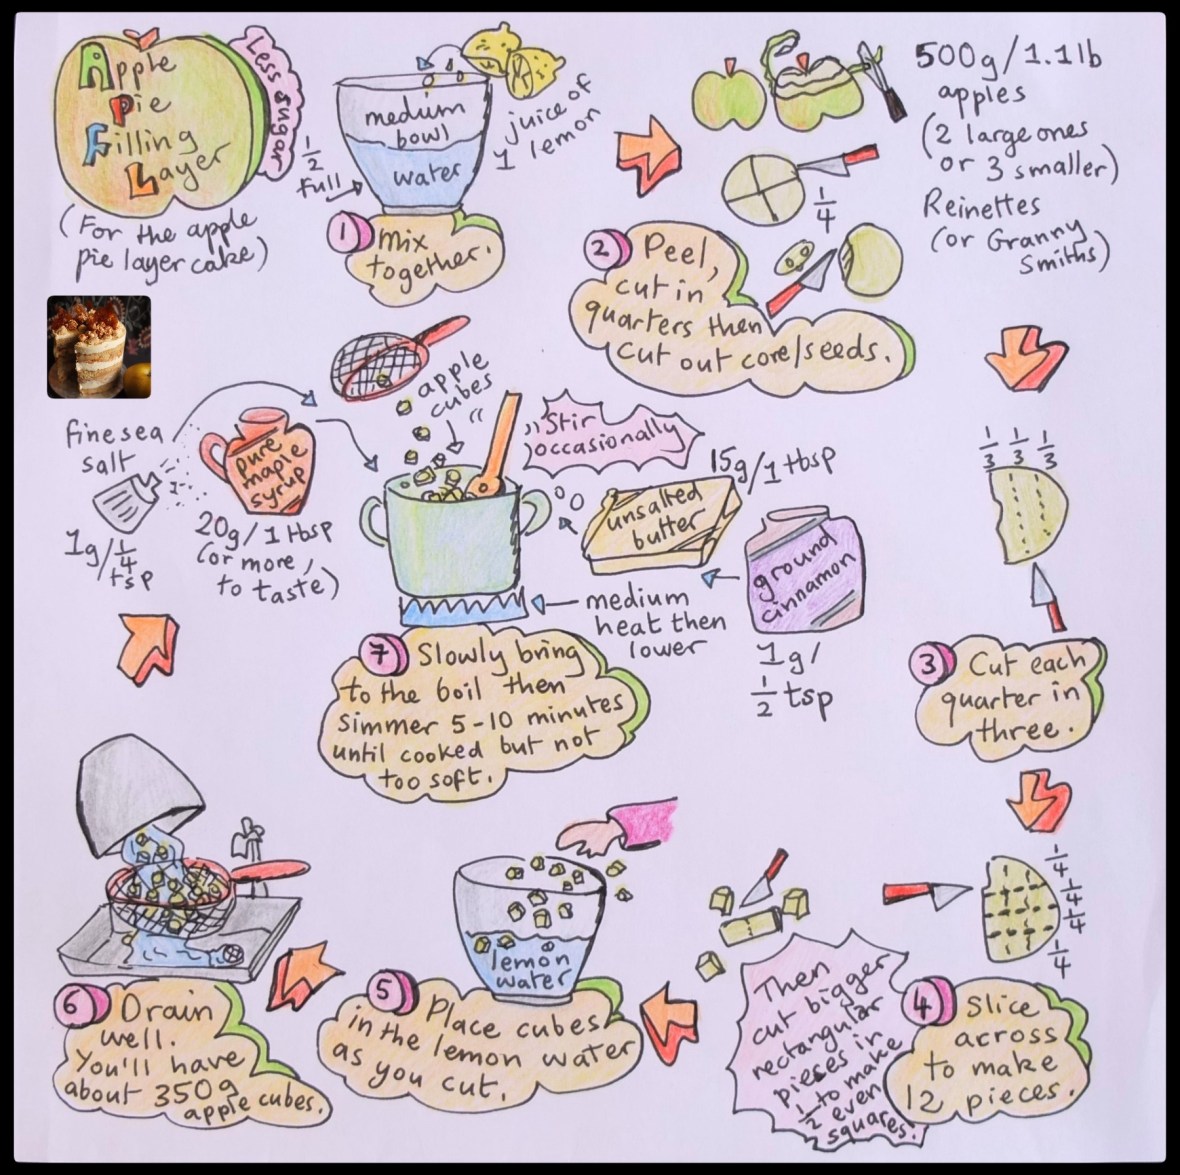 Apple
Pie
Filling
Layer
Less sugar
(For the apple
pie layer cake)
1/2
full
medium
bowl
water
juice of
1 lemon
1 Mix
together.
1/4
2 Peel,
cut in
quarters then
cut out core/seeds.
500g/1.1lb
apples
(2 large ones
or 3 smaller)
Reinettes
(or Granny
Smiths)
1/3 1/3 1/3
3 Cut each
quarter in
three.
1/4
1/4
1/4
1/4
4 Slice
across
to make
12 pieces.
Then
cut bigger
rectangular
pieces in
1/2 to make
even
squares.
lemon
water
5 Place cubes
in the lemon water
as you cut.
6 Drain
well.
You'll have
about 350g
apple cubes.
fine sea
salt
1g/1/4
tsp
pure
maple
syrup
20g/1 tbsp
(or more,
to taste)
apple
cubes
"Stir
occasionally
15g/1 tbsp
unsalted
butter
ground
cinnamon
1g/
1/2 tsp
medium
heat then
lower
7 Slowly bring
to the boil then
simmer 5-10 minutes
until cooked but not
too soft.